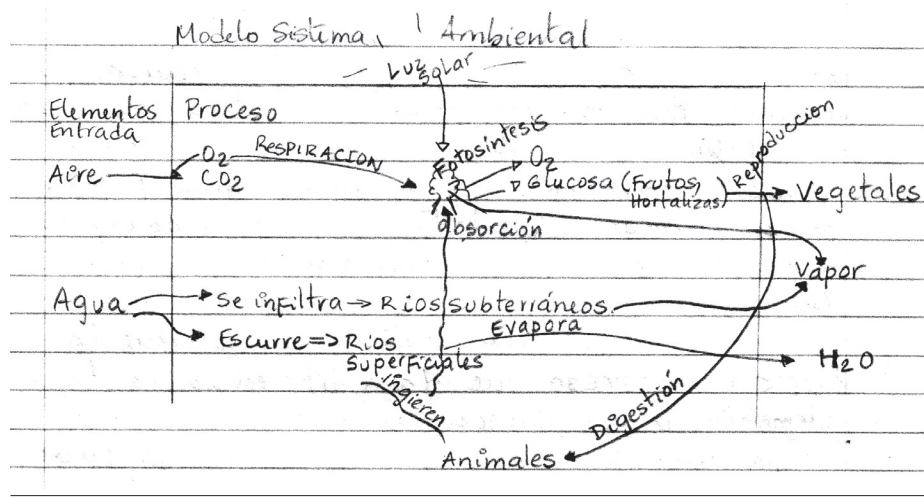 Modelo Sistema Ambiental
Luz
Solar
Elementos
Entrada
Proceso
Aire
O2
CO2
RESPIRACION
Fotosíntesis
O2
Glucosa (Frutas,
Hortalizas)
Reproduccion
Vegetales
absorción
Vapor
Agua
Se infiltra → Rios subterráneos
Escurre => Rios
Superficiales
Evapora
H2O
ingieren
Digestión
Animales